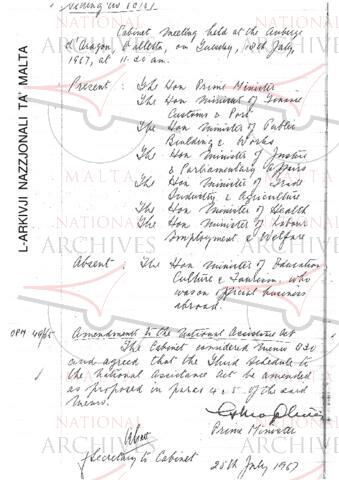 Meeting No 10/67
Cabinet Meeting held at the Auberge
d'Aragon, Valletta, on Tuesday, 18th July,
1967, at 11.20 am.
Present : The Hon Prime Minister
The Hon Minister of Finance
Customs & Port
The Hon Minister of Public
Building & Works
The Hon Minister of Justice
& Parliamentary Affairs
The Hon Minister of Trade
Industry & Agriculture
The Hon Minister of Health
The Hon Minister of Labour
Employment & Welfare
Absent : The Hon Minister of Education
Culture & Tourism, who
was on official business
abroad.
OPM 40/65 Amendments to the National Assistance Act
The Cabinet considered memo
and agreed that the Third Schedule to
the National Assistance Act be amended
as proposed in paras 4 & 5 of the said
memo.
Prime Minister
Secretary to Cabinet
25th July 1967
L-ARKIVJI NAZZJONALI TA' MALTA
NATIONAL
MALTA
ARCHIVES